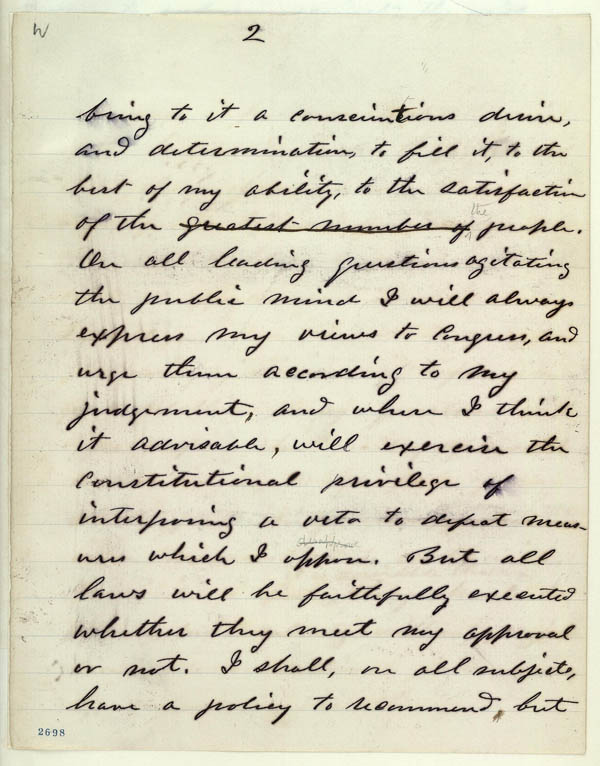 2
bring to it a conscientious desire,
and determination, to fill it, to the
best of my ability, to the satisfaction
of the greatest number of the people.
On all leading questions agitating
the public mind I will always
express my views to Congress, and
urge them according to my
judgement, and when I think
it advisable, will exercise the
constitutional privilege of
interposing a veto to defeat meas-
ures which I oppose. disapprove But all
laws will be faithfully executed
whether they meet my approval
or not. I shall, on all subjects,
have a policy to recommend, but
2698